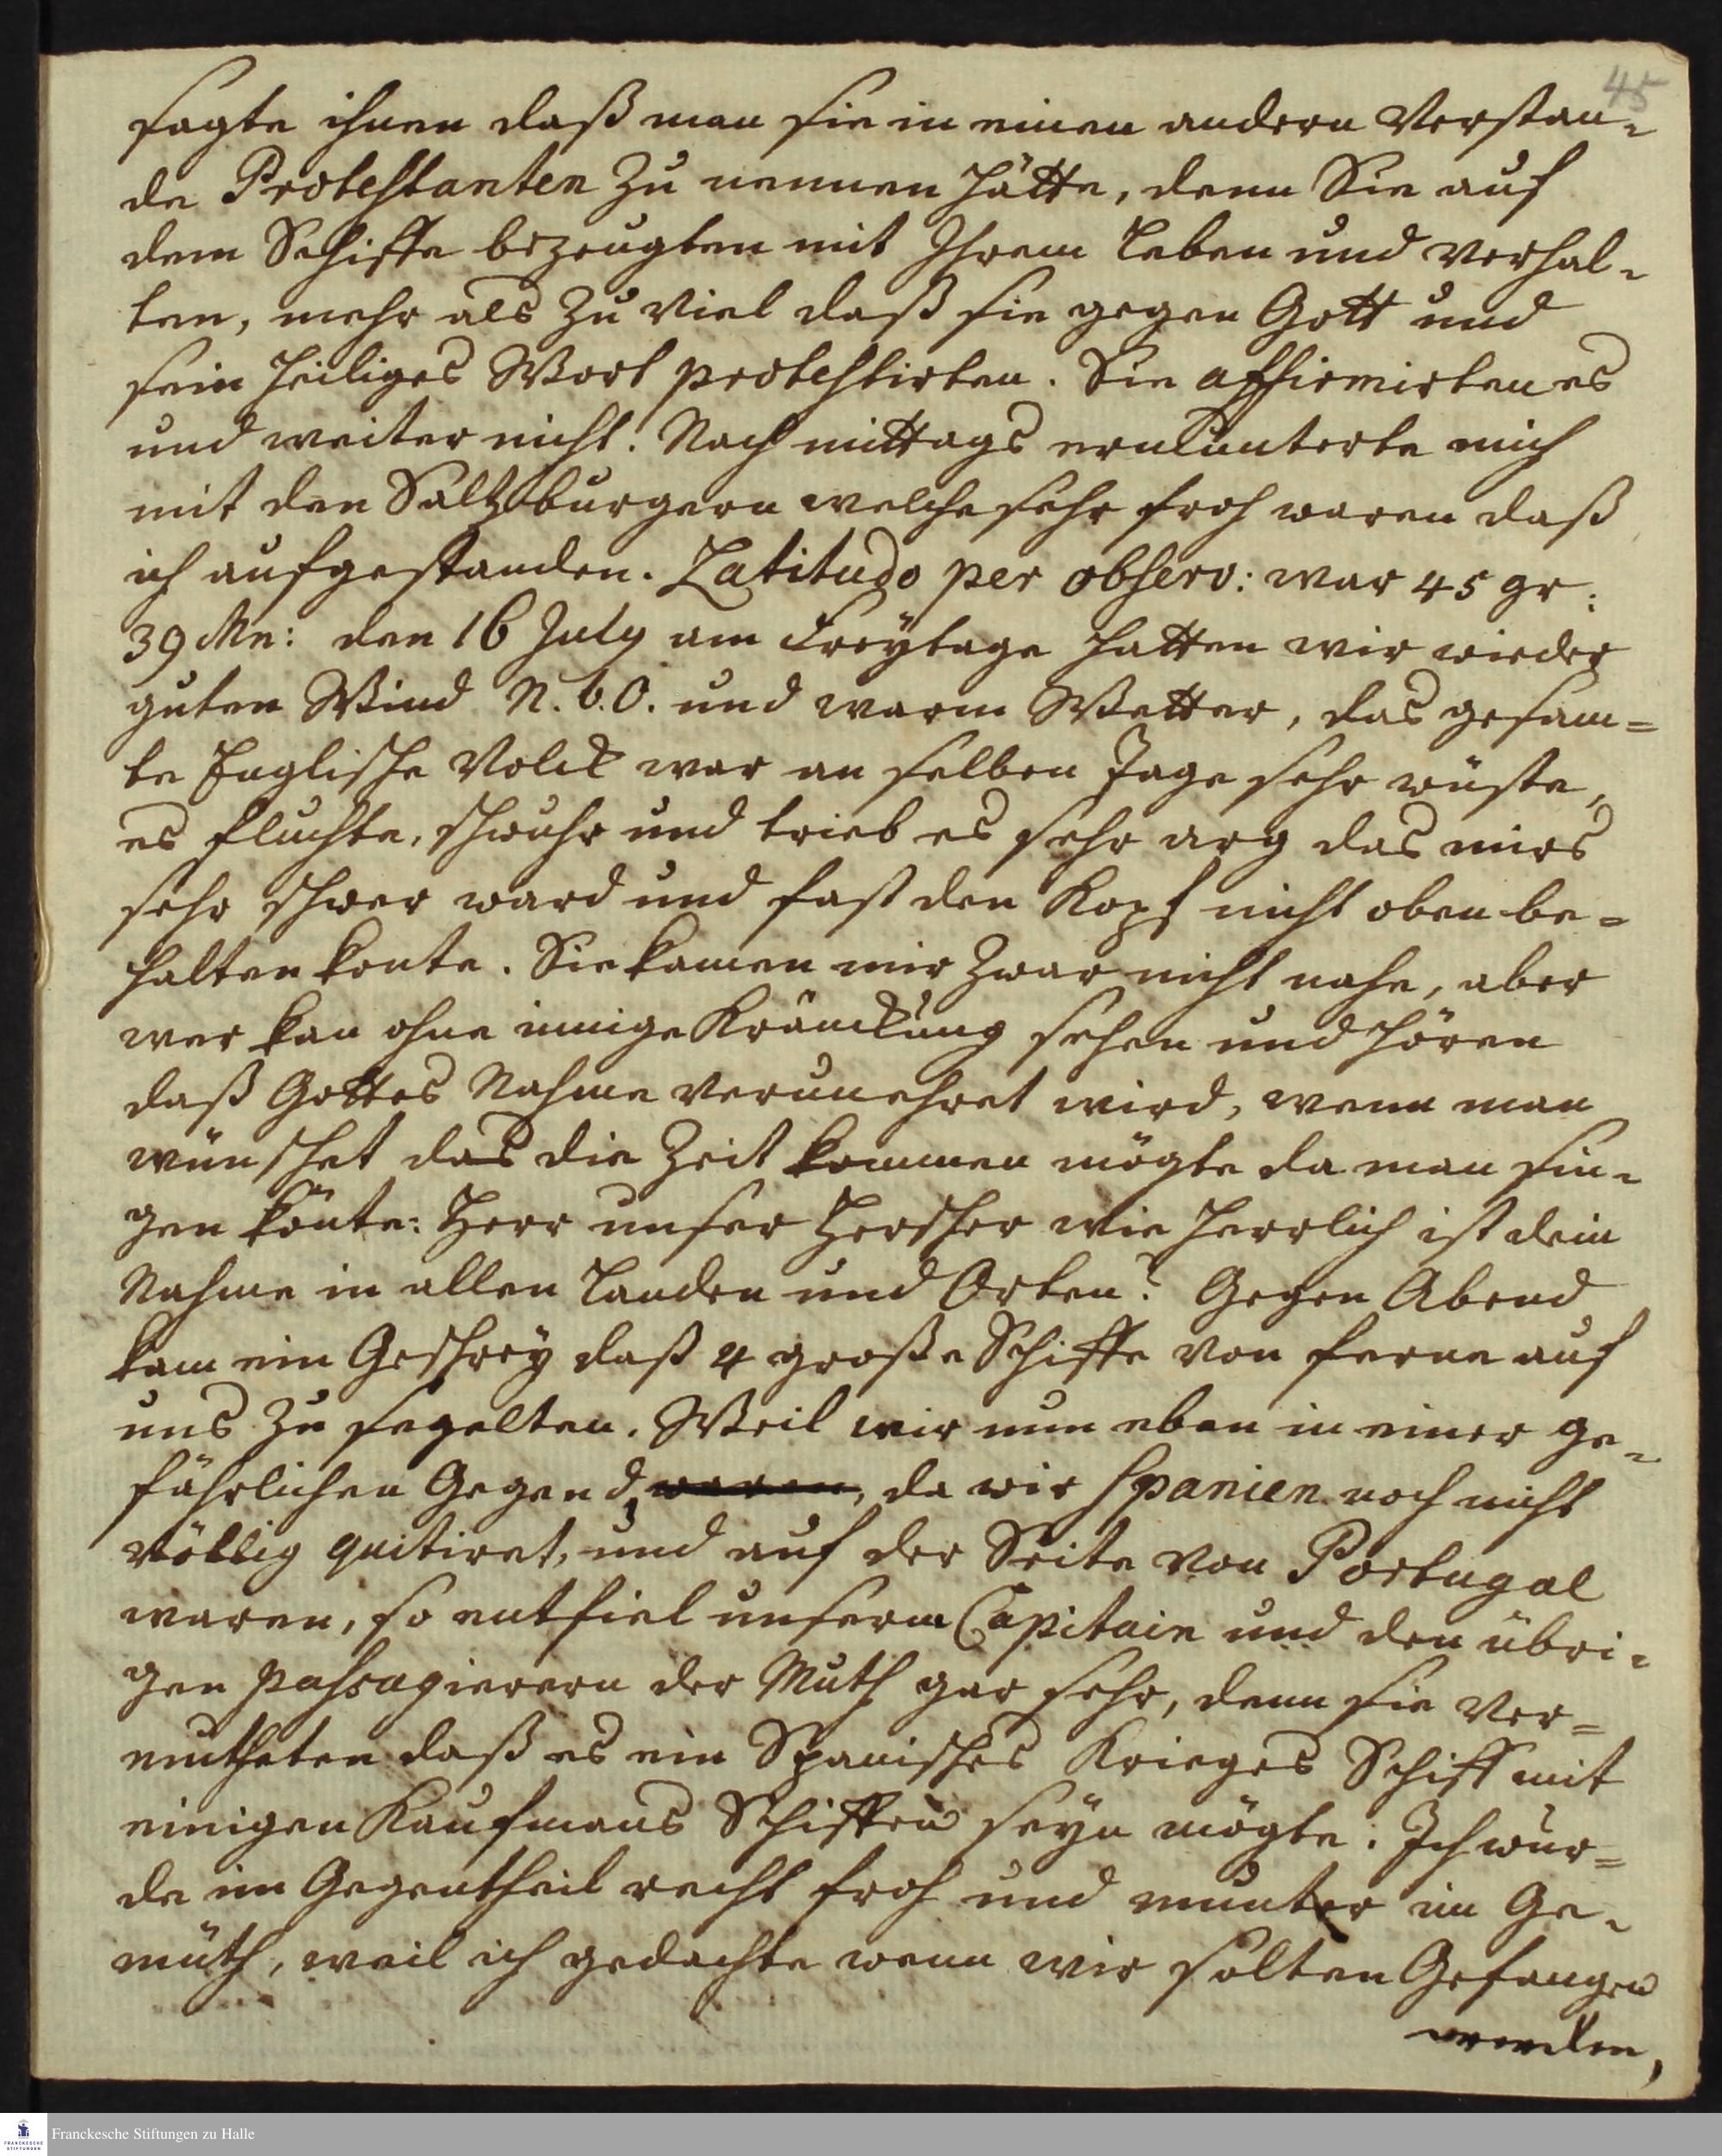 45
sagte ihnen daß man sie in einen andern Verstan-
de Protestanten zu nennen hätte, denn Sie auf
dem Schiffe bezeugten mit Ihrem Leben und Verhal-
ten, mehr als zu viel daß sie gegen Gott und
sein heiliges Wort protestirten. Sie affirmirten es
und weiter nicht. Nach mittags ermunterte mich
mit den Saltzburgern welche sehr froh waren daß
ich aufgestanden. Latitudo per observ: war 45 gr:
39 Mn: den 16 July am Freytage hatten wir wieder
guten Wind N. b. O. und warm Wetter, das gesam=
te Englische Volck war an selben Tage sehr wüste,
es fluchte, schwuhr und trieb es sehr arg das mirs
sehr schwer ward und fast den Kopf nicht oben be=
halten konte. Sie kamen mir zwar nicht nahe, aber
wer kan ohne innige Kränckung sehen und hören
daß Gottes Nahme verunehret wird, wenn man
wünschet das die Zeit kommen mögte da man sin-
gen könte: Herr unser Herscher wie herrlich ist dein
Nahme in allen Landen und Orten? Gegen Abend
kam ein Geschrey daß 4 große Schiffe von ferne auf
uns zu segelten. Weil wir nun eben in einer ge-
fährlichen Gegend, waren, da wir Spanien noch nicht
völlig quitiret, und auf der Seite von Portugal
waren, so entfiel unserm Capitain und den übri-
gen passagierern der Muth gar sehr, denn sie ver=
mutheten daß es ein Spanisches Krieges Schiff mit
einigen Kaufmans Schiffen seyn mögte. Ich wur=
de im Gegentheil recht froh und munter im Ge-
müth, weil ich gedachte wenn wir solten Gefangen
werden,
Franckesche Stiftungen zu Halle
FRANCKESCHE
STIFTUNGEN